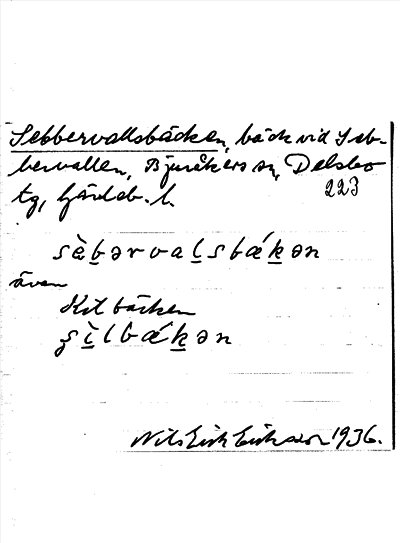 Sebbervallsbäcken, bäck vid Seb-
bervallen, Bjuråkers sn, Delsbo
tg, Gävleb. l. 223
sèb̲ərval̲sbǽk̲ən
även
Kilbäcken
ʂìl̲bǽk̲ən
Nils Erik Eriksson 1936.